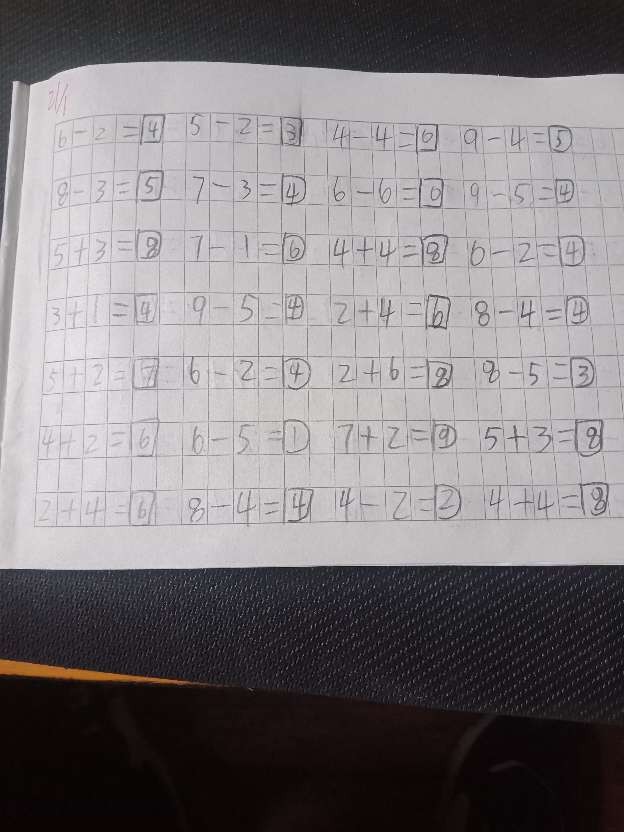 2/1
6-2=4 5-2=3 4-4=0 9-4=5
8-3=5 7-3=4 6-6=0 9-5=4
5+3=8 7-1=6 4+4=8 6-2=4
3+1=4 9-5=4 2+4=6 8-4=4
5+2=7 6-2=4 2+6=8 8-5=3
4+2=6 6-5=1 7+2=9 5+3=8
2+4=6 8-4=4 4-2=2 4+4=8